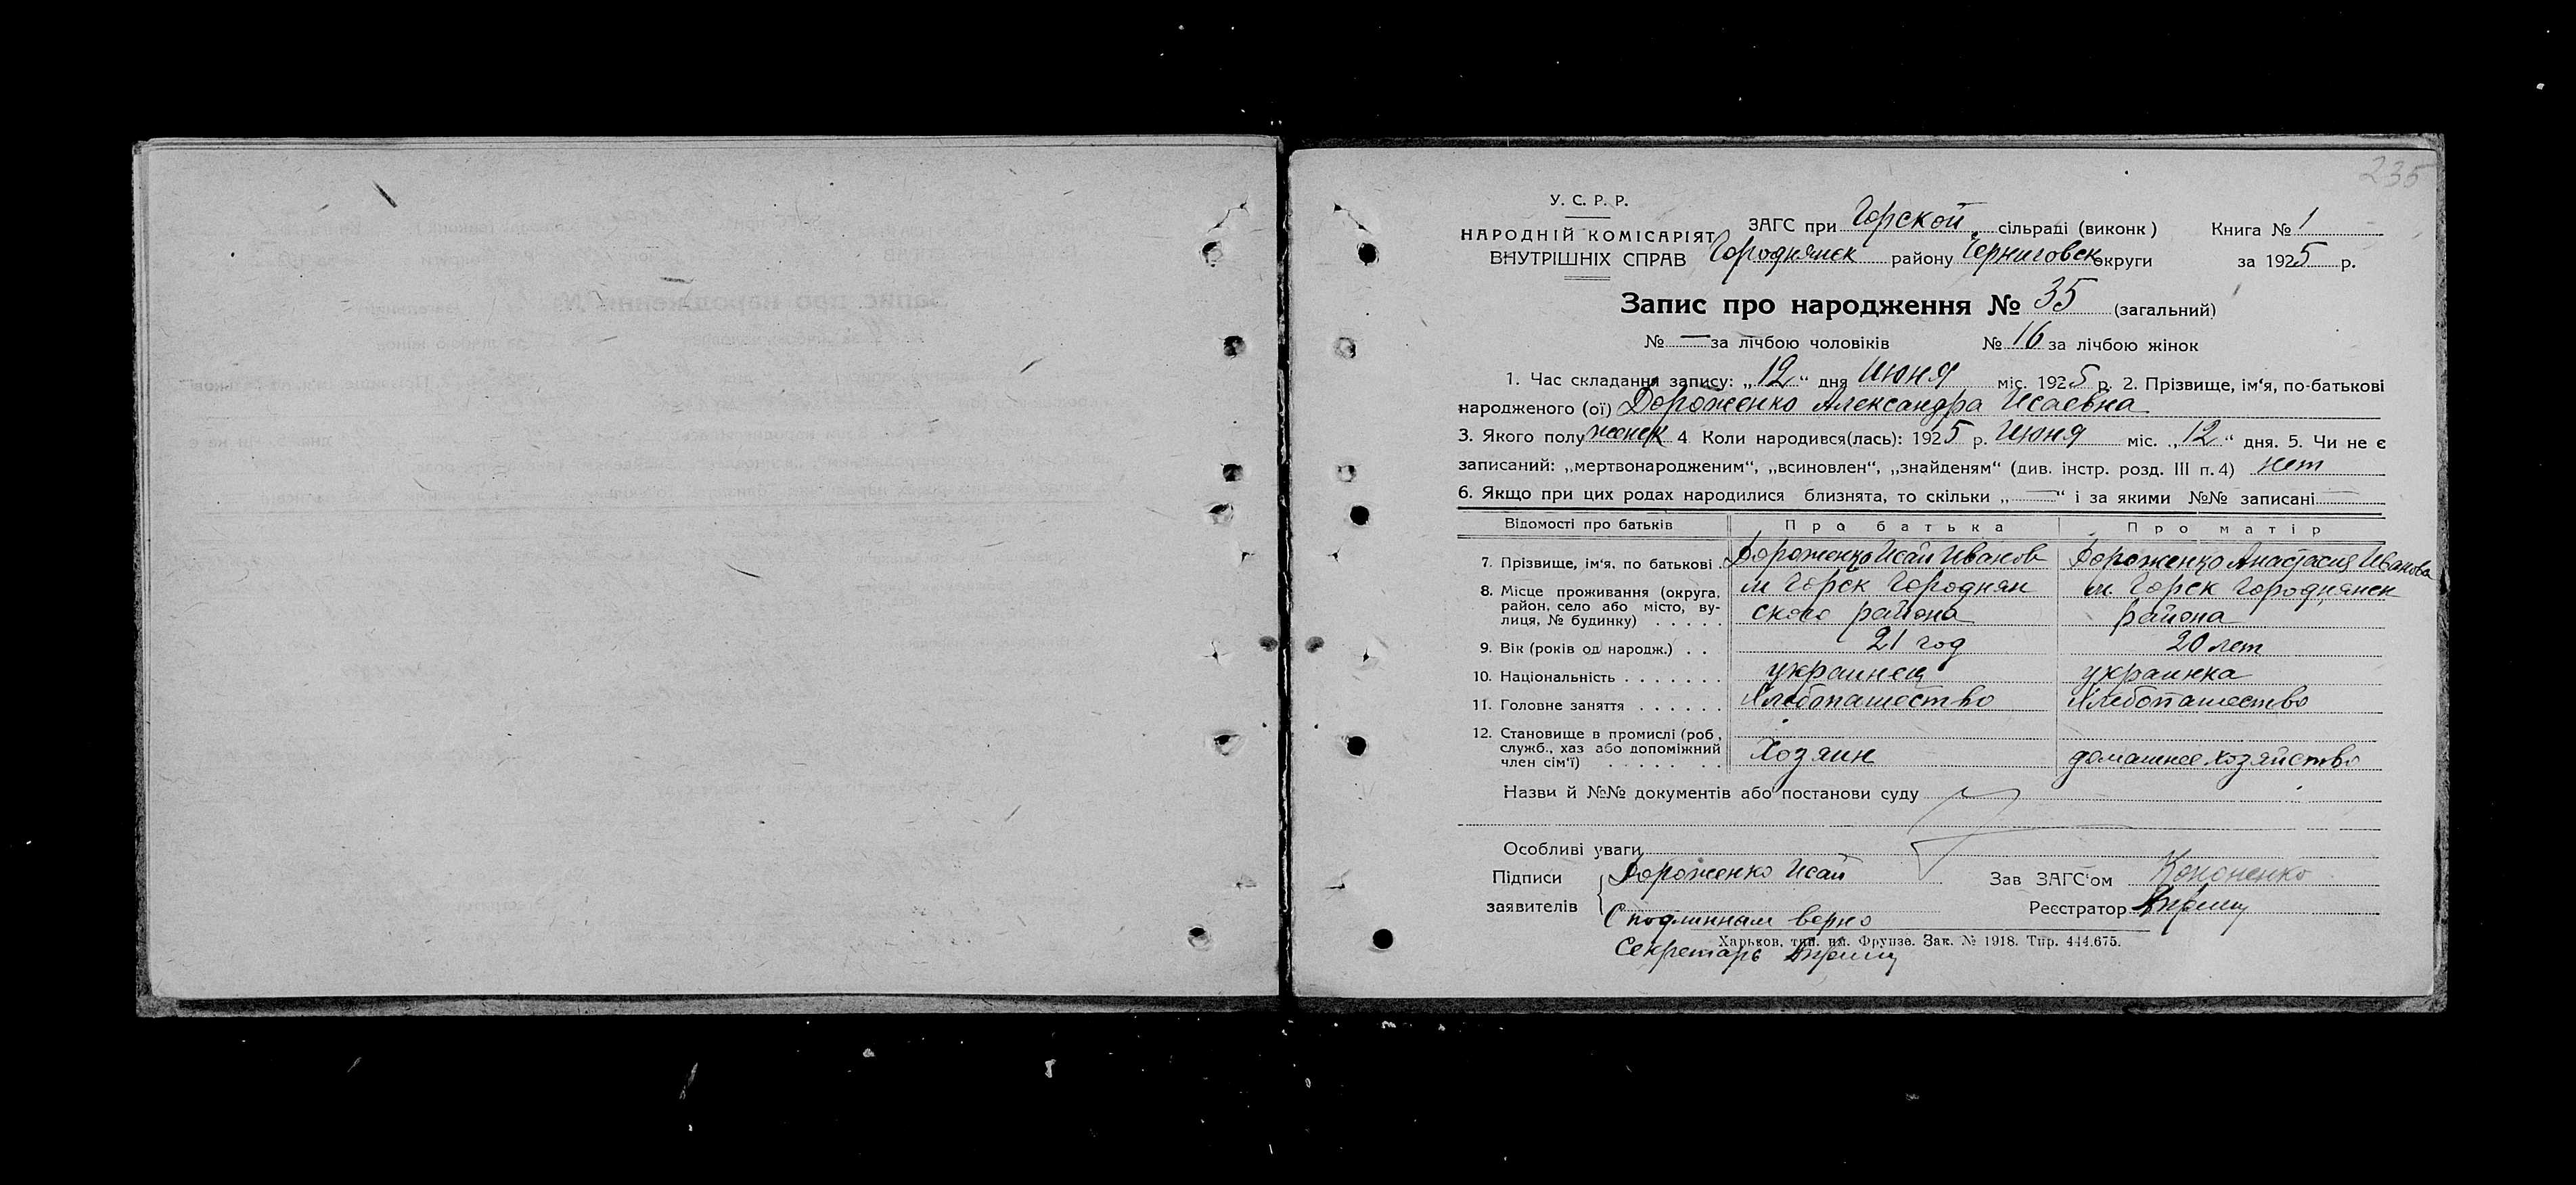 235
У. С. Р. Р.
НАРОДНІЙ КОМІСАРІЯТ
ВНУТРІШНІХ СПРАВ
ЗАГС при Горской сільраді (виконк) Книга № 1
Городнянск району Черниговск округи за 1925 р.
Запис про народження № 35 (загальний)
№ — за лічбою чоловіків № 16 за лічбою жінок
1. Час складання запису: „12“ дня Июня міс. 1925 р. 2. Прізвище, ім‘я, по-батькові
народженого (ої) Дороженко Александра Исаевна
3. Якого полу женск 4 Коли народився(лась): 1925 р. Июня міс. „12“ дня. 5. Чи не є
записаний: „мертвонародженим“, „всиновлен“, „знайденям“ (див. інстр. розд. III п. 4) нет
6. Якщо при цих родах народилися близнята, то скільки „—“ і за якими №№ записані —
Відомості про батьків Про батька Про матір
7. Прізвище, ім‘я, по батькові . Дороженко Исай Иванов Дороженко Анастасия Иванова
8. Місце проживання (округа, м Горск Городнян м. Горск Городнянск
район, село або місто, ву- ского района района
лиця, № будинку) . . . . .
9. Вік (років од народж.) . . 21 год 20 лет
10. Національність . . . . . . . украинец украинка
11. Головне заняття . . . . . . Хлебопашество Хлебопашество
12. Становище в промислі (роб,
служб., хаз або допоміжний Хозяин домашнее хозяйство
член сім‘ї) . . . . . . .
Назви й №№ документів або постанови суду
Особливі уваги
Підписи Дороженко Исай Зав ЗАГС‘ом Кононенко
заявителів Реєстратор
С подлинным верно
Харьков, тип. им. Фрунзе. Зак. № 1918. Тир. 444.675.
Секретарь